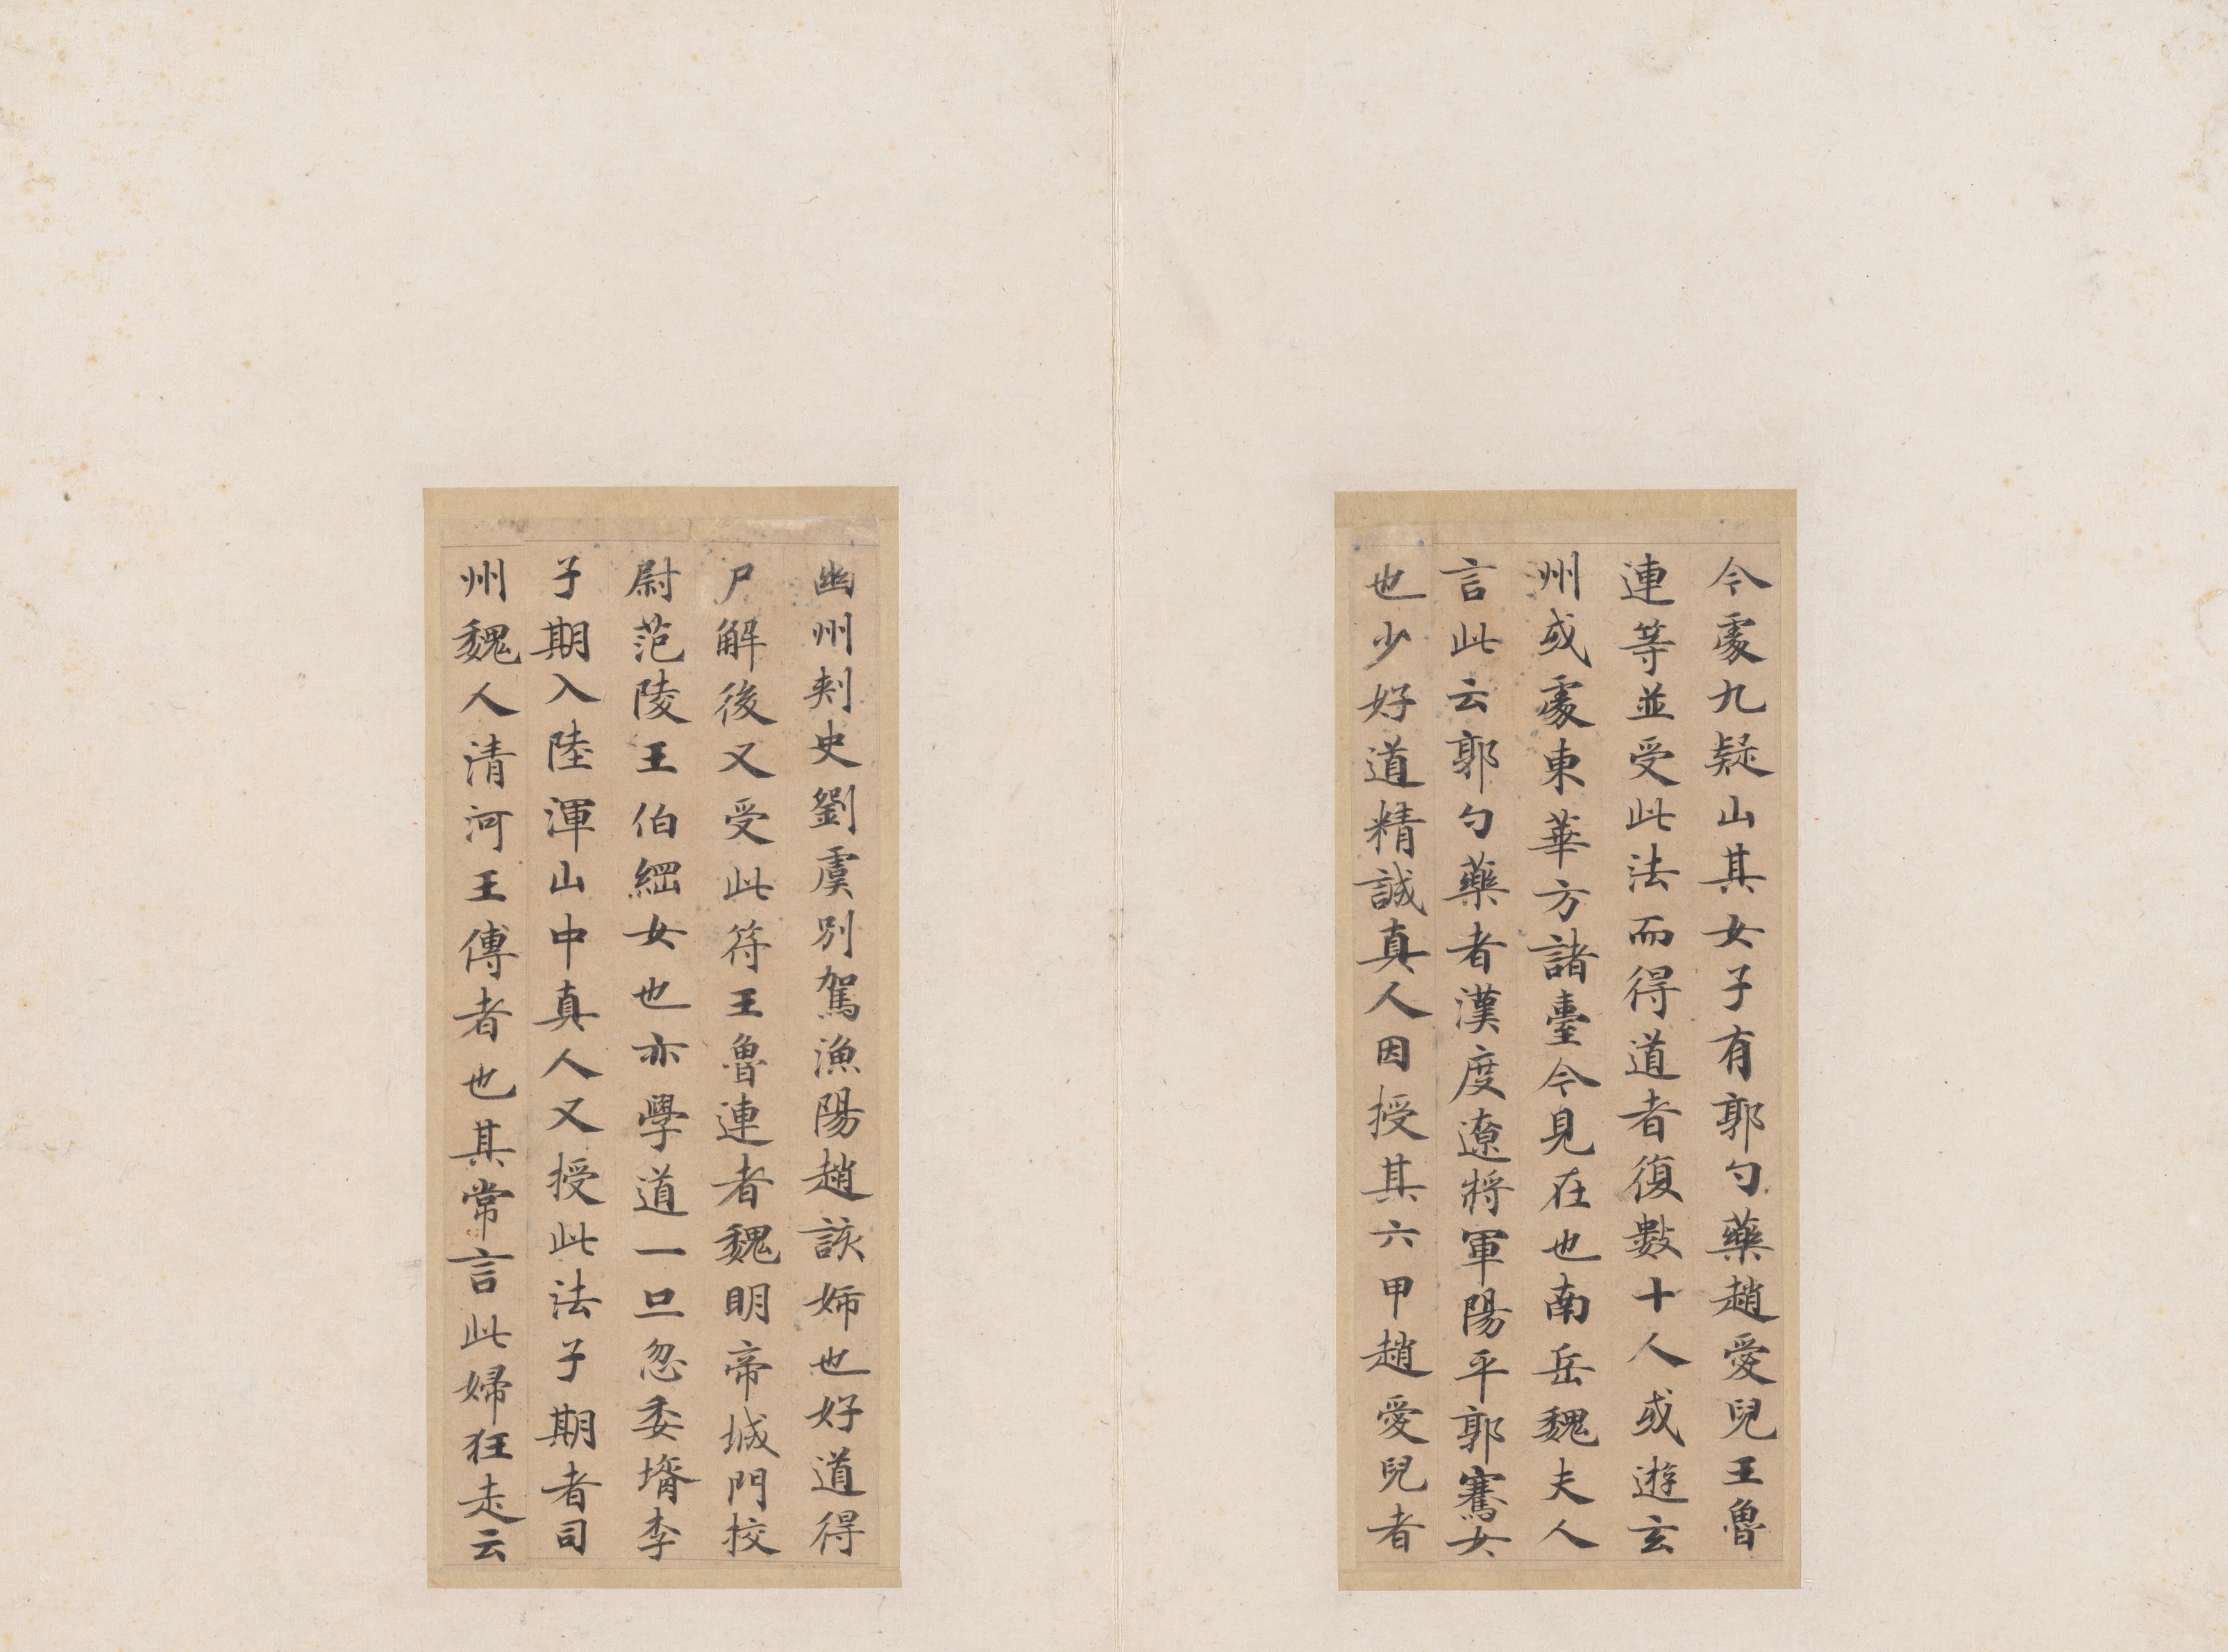 今處九疑山其女子有郭勺藥趙愛兒王魯
連等並受此法而得道者復數十人或遊玄
州或處東華方諸臺今見在也南岳魏夫人
言此云郭勺藥者漢度遼將軍陽平郭騫女
也少好道精誠真人因授其六甲趙愛兒者
幽州刾史劉虞別駕漁陽趙該姊也好道得
尸解後又受此符王魯連者魏明帝城門挍
尉范陵王伯綱女也亦學道一旦忽委壻李
子期入陸渾山中真人又授此法子期者司
州魏人清河王傅者也其常言此婦狂走云